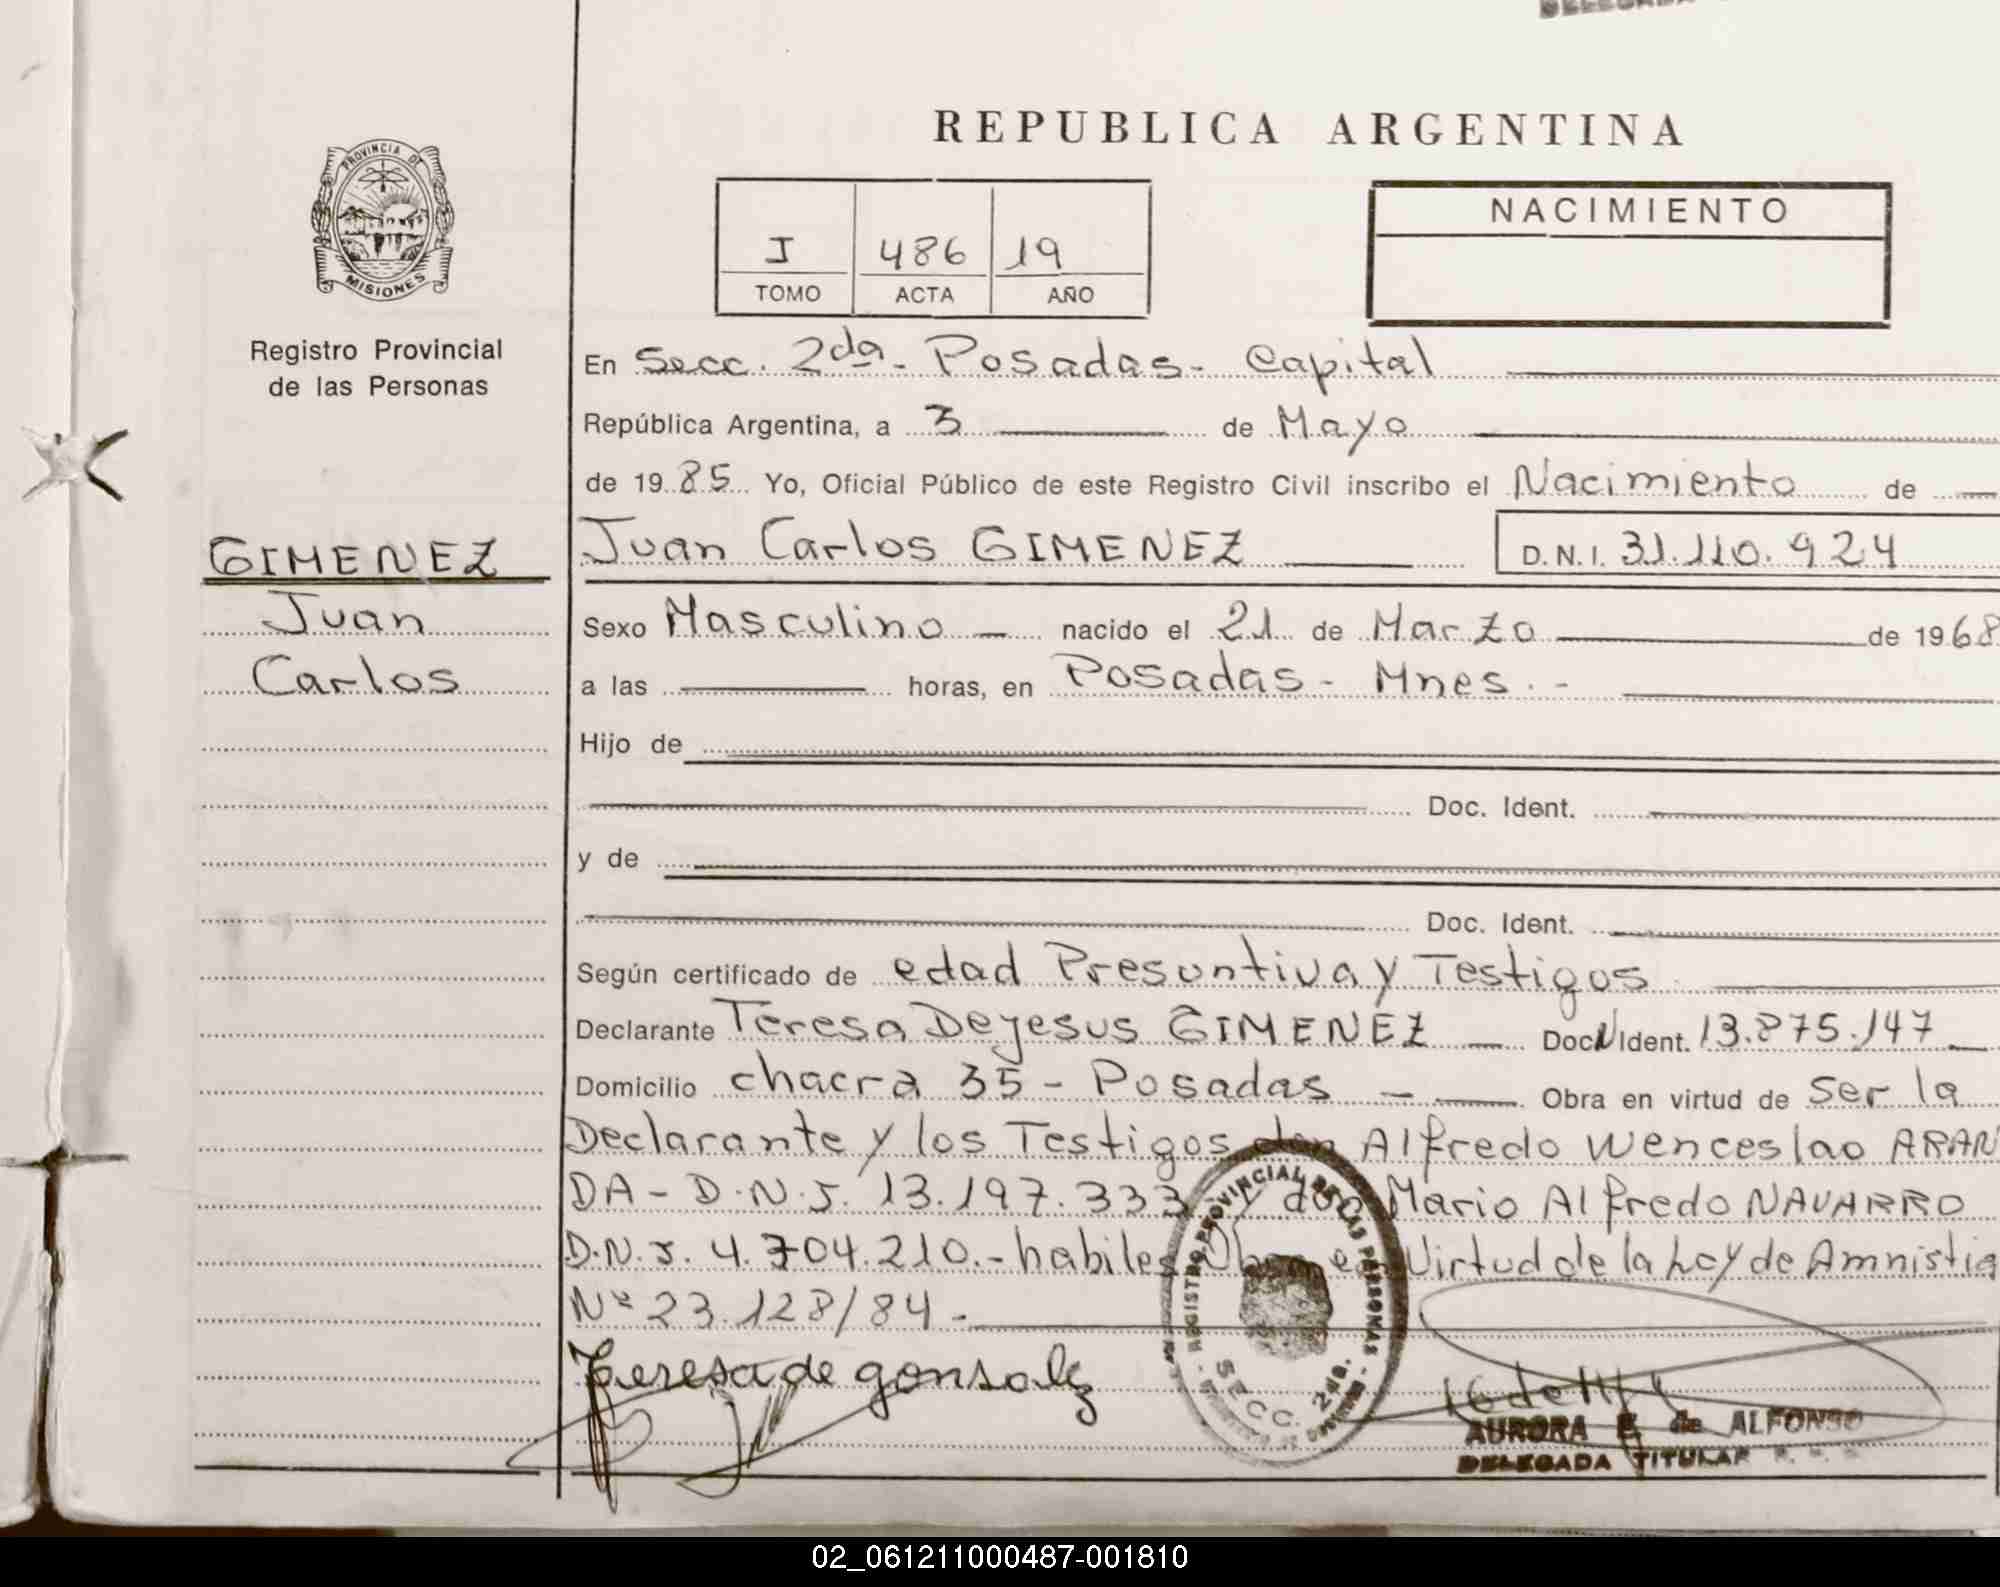 DELEGADA
REPUBLICA ARGENTINA
PROVINCIA DE
MISIONES
Registro Provincial
de las Personas
I 486 19
TOMO ACTA AÑO
NACIMIENTO
En Secc. 2da - Posadas - Capital
República Argentina, a 3 de Mayo
de 1985 Yo, Oficial Público de este Registro Civil inscribo el Nacimiento de
GIMENEZ
Juan
Carlos
Juan Carlos GIMENEZ D.N.I. 31.110.924
Sexo Masculino - nacido el 21 de Marzo de 1968
a las horas, en Posadas - Mnes. -
Hijo de
Doc. Ident.
y de
Doc. Ident.
Según certificado de edad Presuntiva y Testigos
Declarante Teresa Dejesus GIMENEZ - Doc N Ident. 13.875.147
Domicilio chacra 35 - Posadas - Obra en virtud de ser la
Declarante y los Testigos don Alfredo Wenceslao ARAN
DA - D.N.I. 13.197.333 y don Mario Alfredo NAVARRO
D.N.I. 4.704.210.- habiles Obra en Virtud de la Ley de Amnistia
Nº 23.128/84 -
Teresa de gonsalez
REGISTRO PROVINCIAL DE LAS PERSONAS
SECC. 2da.
AURORA E. de ALFONSO
DELEGADA TITULAR
02_061211000487-001810